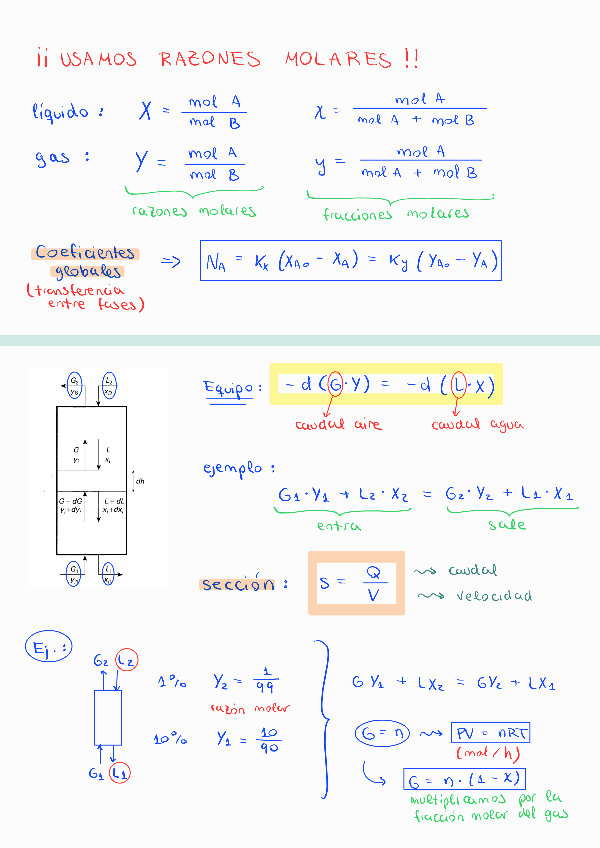 ¡¡ USAMOS RAZONES MOLARES !!
líquido : X = mol A / mol B    x = mol A / mol A + mol B
gas : Y = mol A / mol B    y = mol A / mol A + mol B
razones molares    fracciones molares
Coeficientes globales => N_A = K_x (X_A0 - X_A) = K_y (Y_A0 - Y_A)
(transferencia
entre fases)
G2 L2
y_i L x_i
G L
y_i x_i
dh
G+dG L+dL
y_i+dy_i x_i+dx_i
G1 L1
Equipo : - d (G·Y) = - d (L·X)
caudal aire    caudal agua
ejemplo :
G1·Y1 + L2·X2 = G2·Y2 + L1·X1
entra    sale
sección : S = Q / V
caudal
velocidad
Ej. :
G2 L2
1% Y2 = 1/99
razón molar
10% Y1 = 10/90
G1 L1
G Y1 + L X2 = G Y2 + L X1
G = n PV = nRT
(mol/h)
G = n · (1 - x)
multiplicamos por la
fracción molar del gas